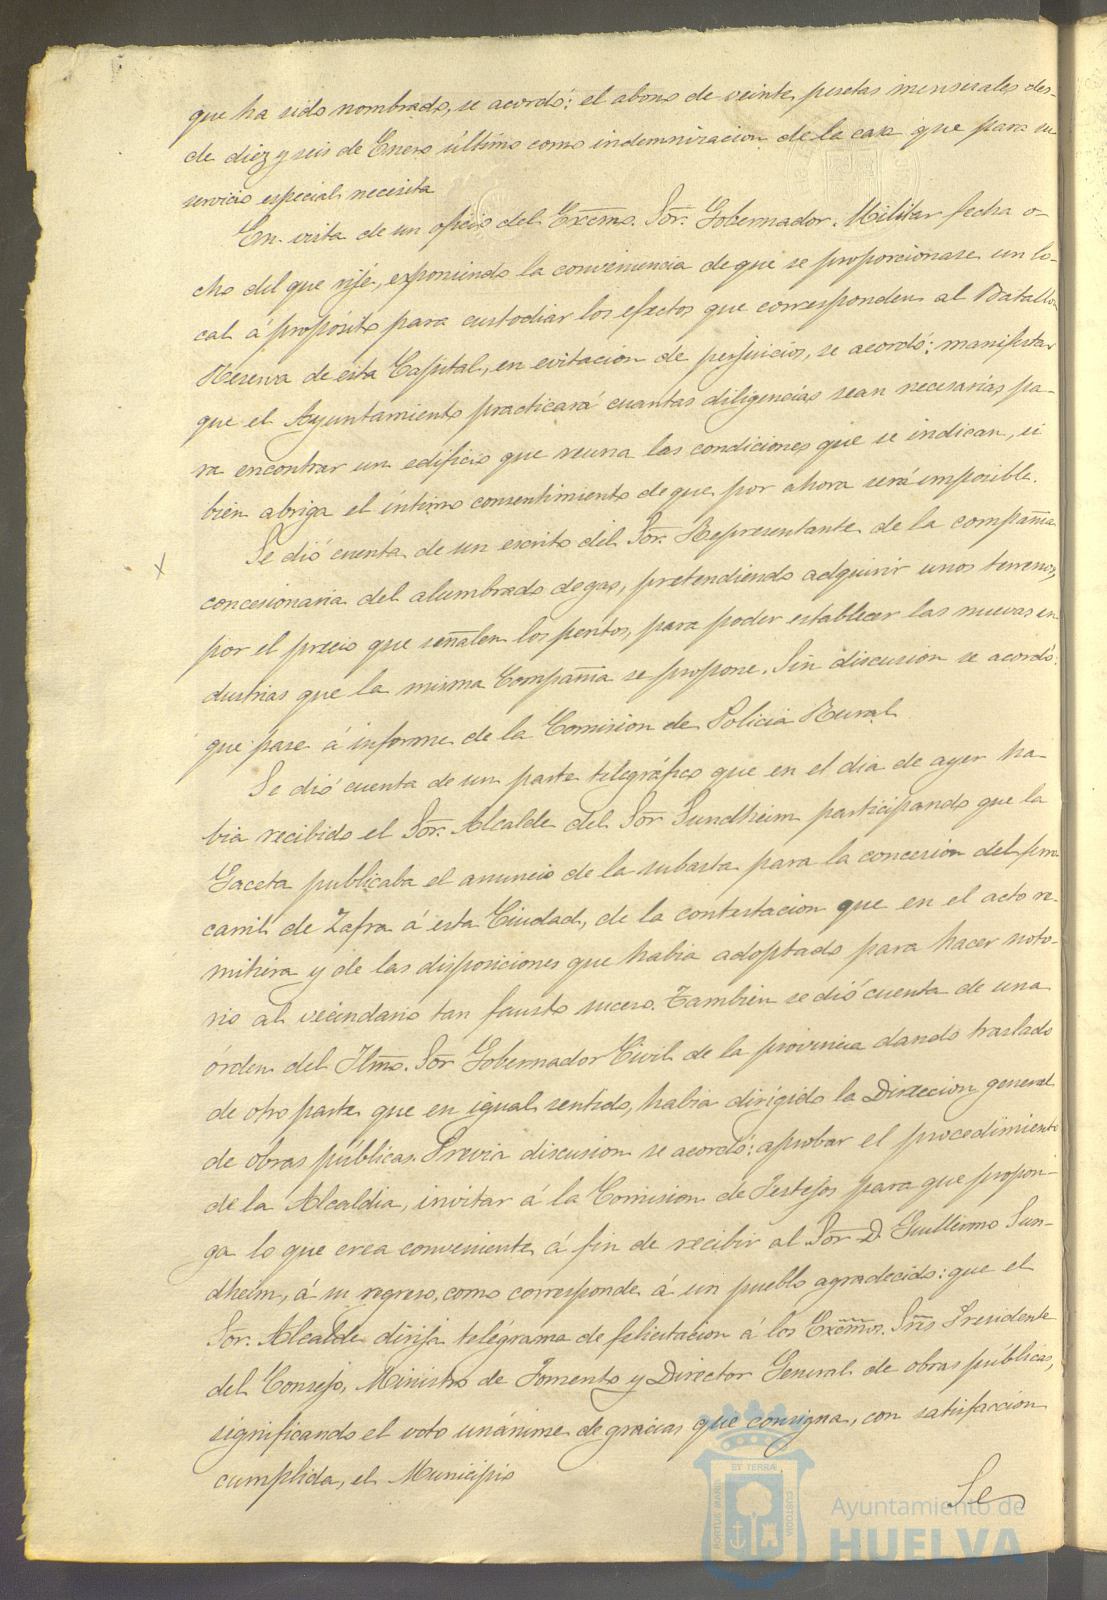 que ha sido nombrado, se acordó: el abono de veinte pesetas mensuales des-
de diez y seis de Enero último como indemnizacion de la casa que para su
servicio especial necesita
En vista de un oficio del Excmo. Sor. Gobernador Militar fecha o-
cho del que rije, exponiendo la conveniencia de que se proporcionase un lo-
cal á propósito para custodiar los efectos que corresponden al Batallon
Reserva de esta Capital, en evitacion de perjuicios, se acordó: manifestar
que el Ayuntamiento practicará cuantas diligencias sean necesarias pa-
ra encontrar un edificio que reuna las condiciones que se indican, si
bien abriga el íntimo consentimiento de que por ahora será imposible.
Se dió cuenta de un escrito del Sor. Representante de la compañia
concesionaria del alumbrado de gas, pretendiendo adquirir unos terrenos,
por el precio que señalen los peritos, para poder establecer las nuevas in
dustrias que la misma Compañia se propone. Sin discusion se acordó:
que pase á informe de la Comision de Policia Rural
Se dió cuenta de un parte telegráfico que en el dia de ayer ha
bia recibido el Sor. Alcalde del Sor Sundheim participando que la
Gaceta publicaba el anuncio de la subasta para la concesion del ferro
carril de Zafra á esta Ciudad, de la contestacion que en el acto re-
mitiera y de las disposiciones que habia adoptado para hacer noto-
rio al vecindario tan fausto suceso. Tambien se dió cuenta de una
órden del Iltmo. Sor Gobernador Civil de la provincia dando traslado
de otro parte que en igual sentido, habia dirigido la Direccion general
de obras públicas. Previa discusion se acordó: aprobar el procedimiento
de la Alcaldia, invitar á la Comision de Festejos para que propon-
ga lo que crea conveniente á fin de recibir al Sor D. Guillermo Sun-
dheim, á su regreso, como corresponde á un pueblo agradecido: que el
Sor. Alcalde dirija telégrama de felicitacion á los Excmos. Sres Presidente
del Consejo, Ministro de Fomento y Director General de obras públicas,
significando el voto unánime de gracias que consigna, con satisfaccion
cumplida, el Municipio
Se
Ayuntamiento de
HUELVA
PORTUS MARIS
ET TERRÆ
CUSTODIA